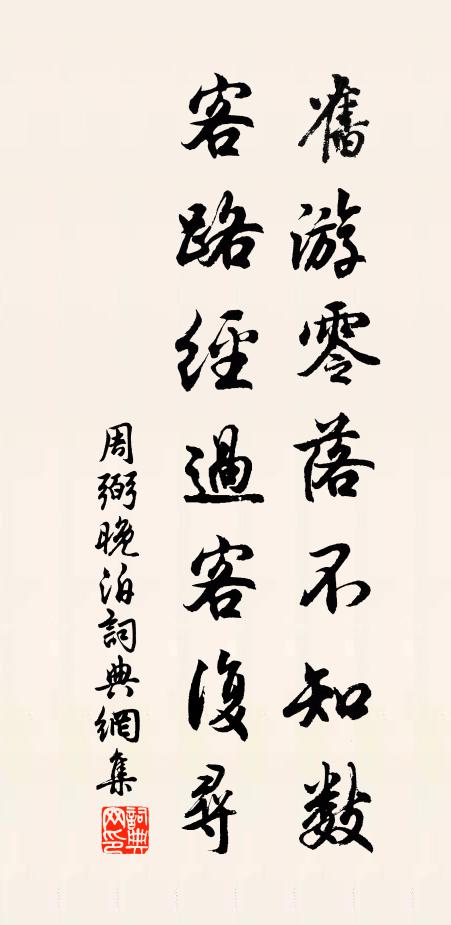 舊游零落不知數
客路經過客復尋
周弼晚泊詞典網集
詞典網印